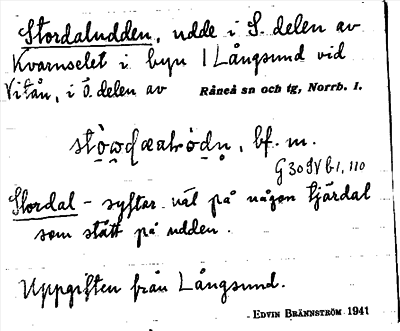 Stordaludden, udde i S. delen av
Kvarnselet i byn Långsund vid
Vitån, i ö. delen av Råneå sn och tg, Norrb. l.
bf. m.
G 30 IV b 1, 110
Stordal - syftar väl på någon tjärdal
som stått på udden.
Uppgiften från Långsund.
EDVIN BRÄNNSTRÖM 1941